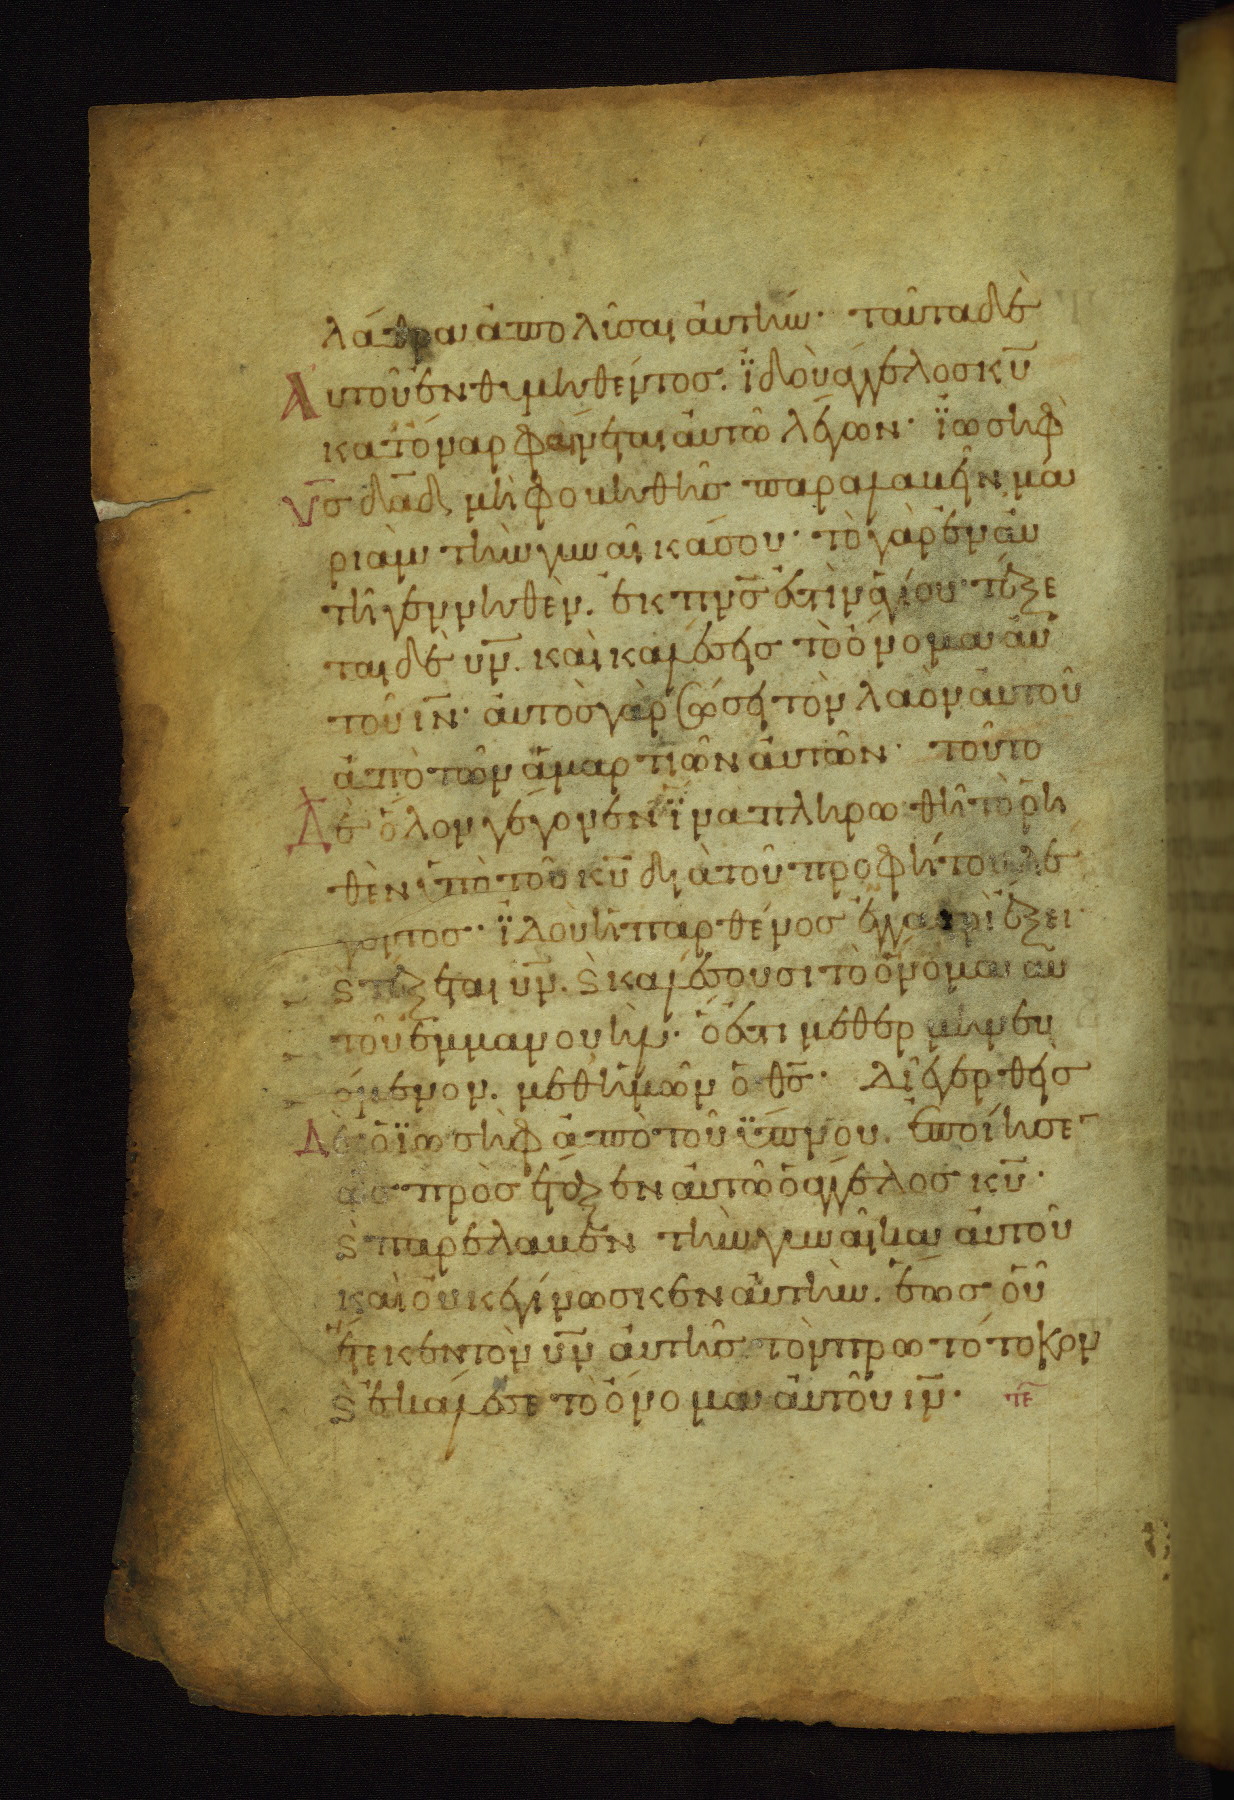 λάθρα ἀπολῦσαι ἀυτήν· ταῦτα δὲ
Αυτοῦ ἐνθυμηθέντος. ϊδοὺ ἄγγελος κ̅υ̅
κατόναρ φαίνεται ἀυτῶ λέγων· ϊωσὴφ
υ̅ς̅ δα̅δ̅ μὴ φοβηθῆς παραλαβῆν μα
ριὰμ τὴν γυναῖκα σου· τὸ γὰρ ἐν ἀυ
τῆ γεννηθὲν. ἐκ πν̅ς̅ ἐστὶν ἁγίου· τέξε
ται δὲ υ̅ν̅. καὶ καλέσεις τὸ ὄνομα ἀυ
τοῦ ι̅ν̅· ἀυτὸς γὰρ σώσει τὸν λαὸν ἀυτοῦ
ἀπὸ τῶν ἁμαρτιῶν ἀυτῶν· τοῦτο
Δὲ ὅλον γέγονεν ϊνα πληρωθῆ τὸ ῥη
θὲν ὑπὸ τοῦ κ̅υ̅ διὰ τοῦ προφήτου λέ
γοντος· ϊδοὺ ἡ παρθένος ἐν γαστρὶ ἕξει·
ϛ τέξεται υ̅ν̅. ϛ καλέσουσι τὸ ὄνομα ἀυ
τοῦ ἐμμανουήλ· ὅ ἐστι μεθερμηνευ
όμενον. μεθ ἡμῶν ὁ θ̅ς̅· Διεγερθεὶς
Δὲ ὁ ϊωσὴφ ἀπὸ τοῦ ϋπνου. ἐποίησε
ὡς προσέταξεν ἀυτῶ ὁ ἄγγελος κ̅υ̅·
ϛ παρέλαβεν τὴν γυναῖκα ἀυτοῦ
καὶ οὐκ ἐγίνωσκεν ἀυτὴν. ἕως οὗ
ἔτεκεν τὸν υ̅ν̅ ἀυτῆς τὸν πρωτότοκον
ϛ ἐκάλεσε τὸ ὄνομα ἀυτοῦ ι̅ν̅· τε